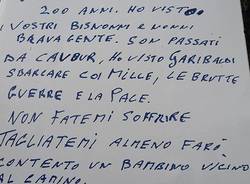 200 ANNI. HO VISTO
I VOSTRI BISNONNI E NONNI
BRAVA GENTE. SON PASSATI
DA CAVOUR, HO VISTO GARIBALDI
SBARCARE COI MILLE, LE BRUTTE
GUERRE E LA PACE.
NON FATEMI SOFFRIRE
TAGLIATEMI ALMENO FARÒ
CONTENTO UN BAMBINO VICINO
AL CAMINO.